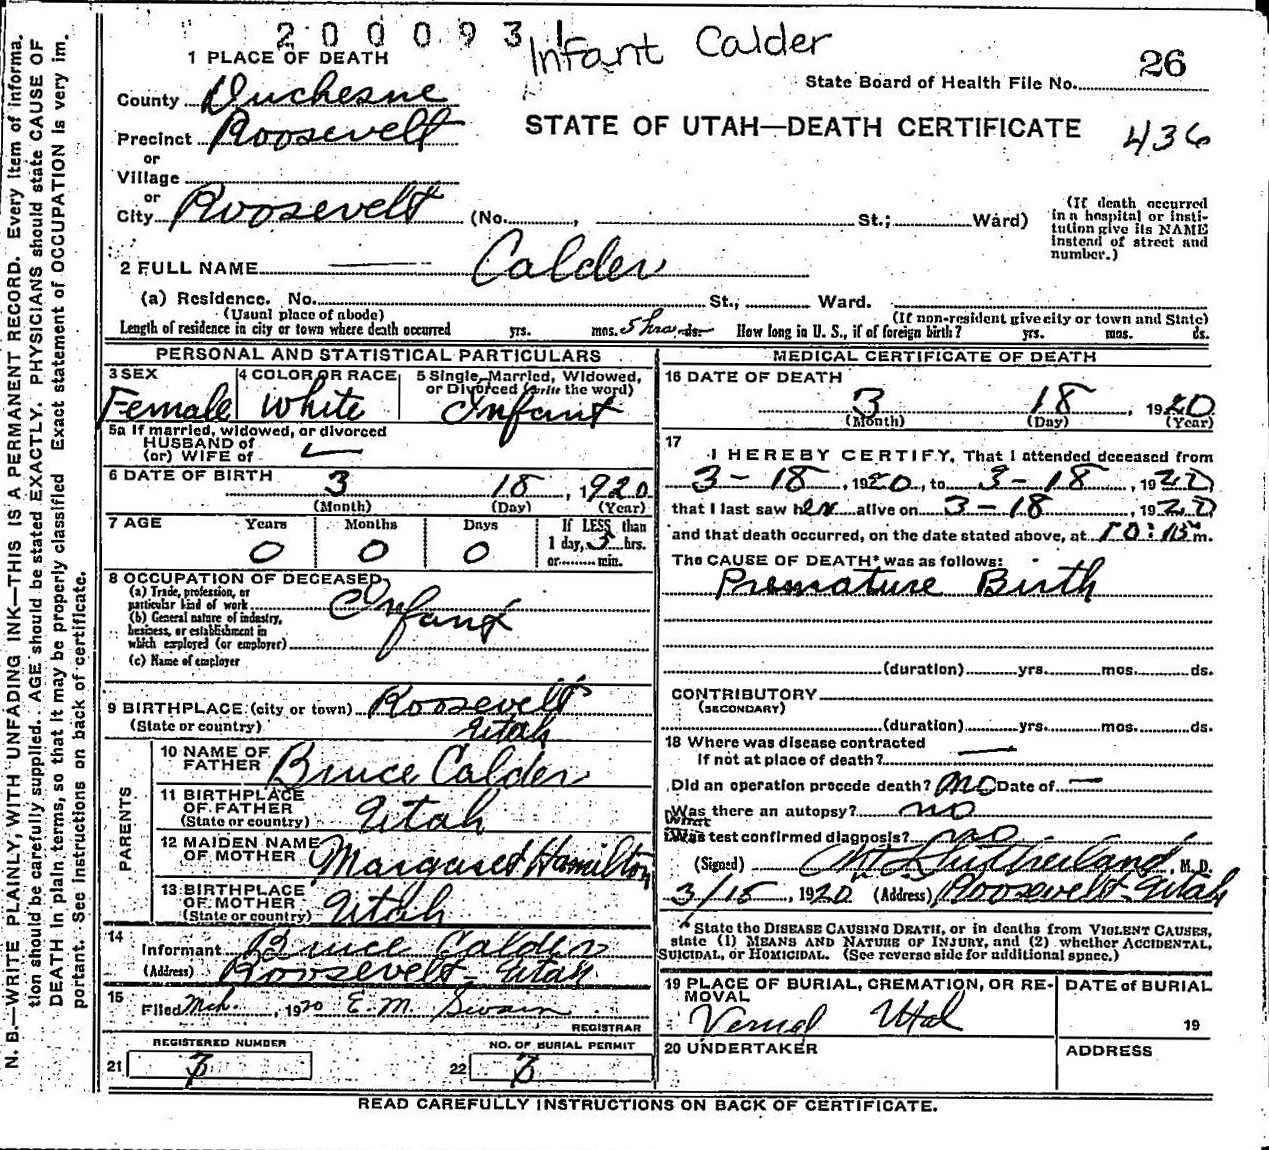 2000931
Infant Calder
1 PLACE OF DEATH
State Board of Health File No. 26
County Duchesne
STATE OF UTAH—DEATH CERTIFICATE 436
Precinct Roosevelt
or
Village
or
City Roosevelt (No. , St.; Ward)
(If death occurred
in a hospital or insti-
tution give its NAME
instead of street and
number.)
2 FULL NAME Calder
(a) Residence. No. St., Ward.
(Usual place of abode) (If non-resident give city or town and State)
Length of residence in city or town where death occurred yrs. mos. 5 hrs. ds. How long in U. S., if of foreign birth? yrs. mos. ds.
PERSONAL AND STATISTICAL PARTICULARS
3 SEX Female
4 COLOR OR RACE White
5 Single, Married, Widowed,
or Divorced (write the word)
Infant
5a If married, widowed, or divorced
HUSBAND of
(or) WIFE of
6 DATE OF BIRTH 3 18, 1920
(Month) (Day) (Year)
7 AGE Years Months Days If LESS than
0 0 0 1 day, 5 hrs.
or min.
8 OCCUPATION OF DECEASED
(a) Trade, profession, or
particular kind of work Infant
(b) General nature of industry,
business, or establishment in
which employed (or employer)
(c) Name of employer
9 BIRTHPLACE (city or town) Roosevelt
(State or country) Utah
PARENTS
10 NAME OF
FATHER Bruce Calder
11 BIRTHPLACE
OF FATHER
(State or country) Utah
12 MAIDEN NAME
OF MOTHER Margaret Hamilton
13 BIRTHPLACE
OF MOTHER
(State or country) Utah
14
Informant Bruce Calder
(Address) Roosevelt - Utah
15
Filed Mch. , 1920 E. M. Swain
REGISTRAR
REGISTERED NUMBER
21 7
NO. OF BURIAL PERMIT
22 7
MEDICAL CERTIFICATE OF DEATH
16 DATE OF DEATH
3 18, 1920
(Month) (Day) (Year)
17
I HEREBY CERTIFY, That I attended deceased from
3-18, 1920, to 3-18, 1920
that I last saw her alive on 3-18, 1920
and that death occurred, on the date stated above, at m.
The CAUSE OF DEATH* was as follows:
Premature Birth
(duration) yrs. mos. ds.
CONTRIBUTORY
(SECONDARY)
(duration) yrs. mos. ds.
18 Where was disease contracted
If not at place of death? —
Did an operation precede death? no Date of —
Was there an autopsy? no
What
Was test confirmed diagnosis? no
(Signed) Sutherland, M. D.
3/18, 1920 (Address) Roosevelt - Utah
* State the DISEASE CAUSING DEATH, or in deaths from VIOLENT CAUSES,
state (1) MEANS AND NATURE OF INJURY, and (2) whether ACCIDENTAL,
SUICIDAL, or HOMICIDAL. (See reverse side for additional space.)
19 PLACE OF BURIAL, CREMATION, OR RE-
MOVAL
Vernal Utah
DATE of BURIAL
19
20 UNDERTAKER
ADDRESS
READ CAREFULLY INSTRUCTIONS ON BACK OF CERTIFICATE.
N. B.—WRITE PLAINLY, WITH UNFADING INK—THIS IS A PERMANENT RECORD. Every item of informa-
tion should be carefully supplied. AGE should be stated EXACTLY. PHYSICIANS should state CAUSE OF
DEATH in plain terms, so that it may be properly classified Exact statement of OCCUPATION is very im-
portant. See instructions on back of certificate.